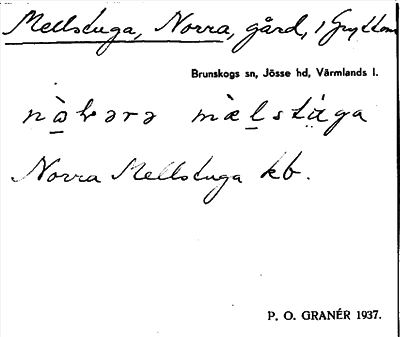 Mellstuga, Norra, gård, i Gryttom
Brunskogs sn, Jösse hd, Värmlands l.
nò̱rərə mæ̀ḻstu̇̈ga
Norra Mellstuga kb.
P. O. GRANÉR 1937.